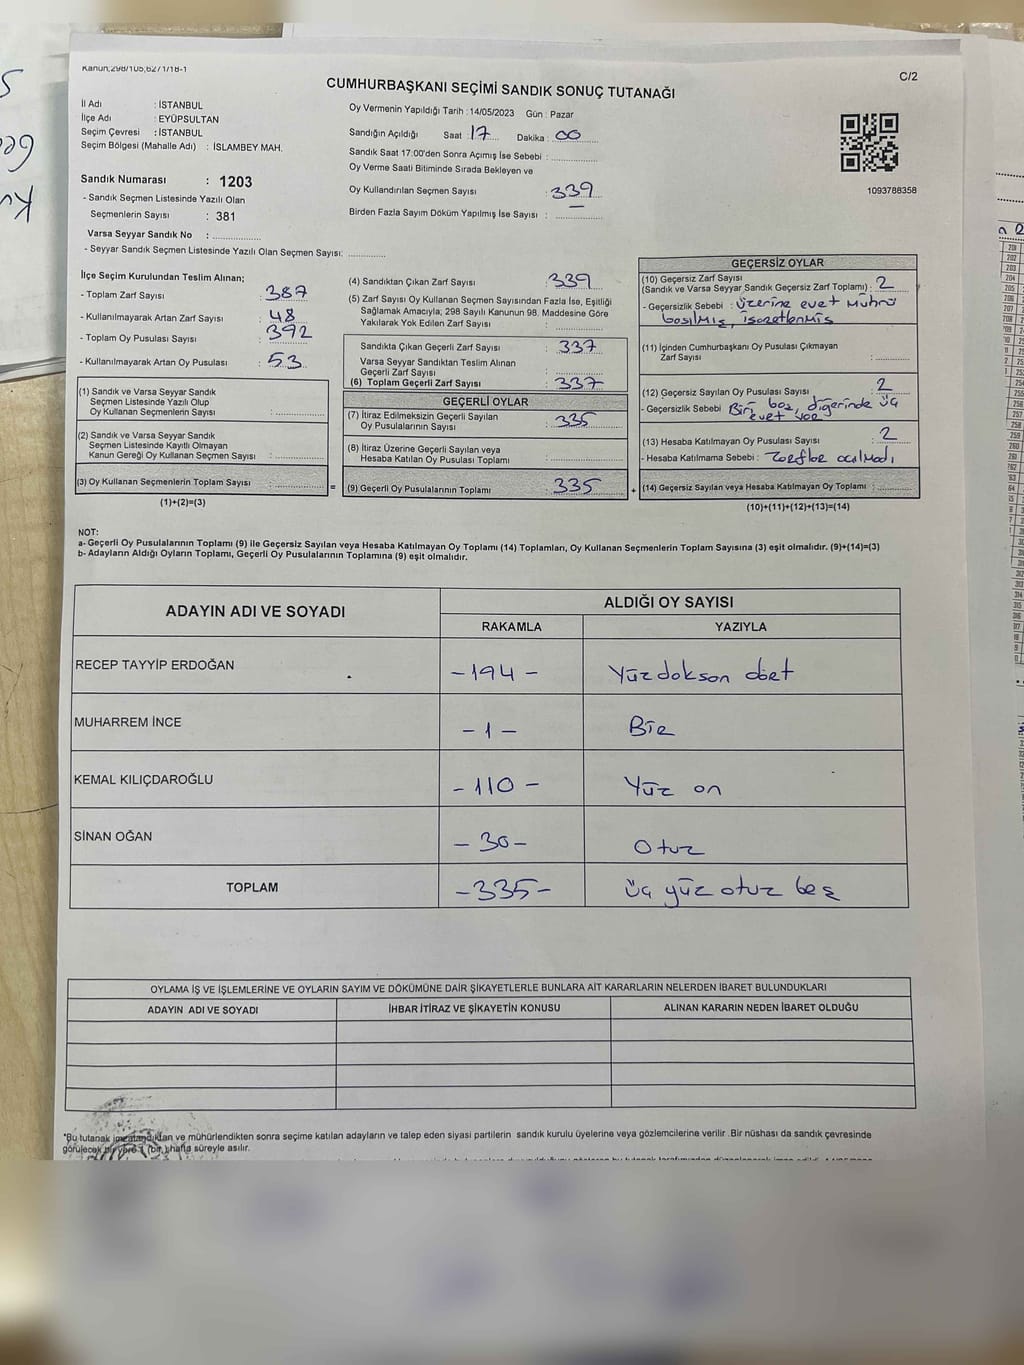 Kanun,298/105,6271/18-1
C/2
CUMHURBAŞKANI SEÇİMİ SANDIK SONUÇ TUTANAĞI
İl Adı : İSTANBUL
İlçe Adı : EYÜPSULTAN
Seçim Çevresi : İSTANBUL
Seçim Bölgesi (Mahalle Adı) : İSLAMBEY MAH.
Sandık Numarası : 1203
- Sandık Seçmen Listesinde Yazılı Olan
Seçmenlerin Sayısı : 381
Varsa Seyyar Sandık No :
- Seyyar Sandık Seçmen Listesinde Yazılı Olan Seçmen Sayısı:
Oy Vermenin Yapıldığı Tarih : 14/05/2023 Gün : Pazar
Sandığın Açıldığı Saat 17 Dakika : 00
Sandık Saat 17:00'den Sonra Açımış İse Sebebi :
Oy Verme Saati Bitiminde Sırada Bekleyen ve
Oy Kullandırılan Seçmen Sayısı : 339
Birden Fazla Sayım Döküm Yapılmış İse Sayısı : —
1093788358
İlçe Seçim Kurulundan Teslim Alınan;
- Toplam Zarf Sayısı : 387
- Kullanılmayarak Artan Zarf Sayısı : 48
- Toplam Oy Pusulası Sayısı : 392
- Kullanılmayarak Artan Oy Pusulası : 53
(1) Sandık ve Varsa Seyyar Sandık
Seçmen Listesinde Yazılı Olup
Oy Kullanan Seçmenlerin Sayısı :
(2) Sandık ve Varsa Seyyar Sandık
Seçmen Listesinde Kayıtlı Olmayan
Kanun Gereği Oy Kullanan Seçmen Sayısı :
(3) Oy Kullanan Seçmenlerin Toplam Sayısı :
(1)+(2)=(3)
(4) Sandıktan Çıkan Zarf Sayısı : 339
(5) Zarf Sayısı Oy Kullanan Seçmen Sayısından Fazla İse, Eşitliği
Sağlamak Amacıyla; 298 Sayılı Kanunun 98. Maddesine Göre
Yakılarak Yok Edilen Zarf Sayısı :
Sandıkta Çıkan Geçerli Zarf Sayısı : 337
Varsa Seyyar Sandıktan Teslim Alınan
Geçerli Zarf Sayısı :
(6) Toplam Geçerli Zarf Sayısı : 337
GEÇERLİ OYLAR
(7) İtiraz Edilmeksizin Geçerli Sayılan
Oy Pusulalarının Sayısı : 335
(8) İtiraz Üzerine Geçerli Sayılan veya
Hesaba Katılan Oy Pusulası Toplamı :
= (9) Geçerli Oy Pusulalarının Toplamı : 335 +
GEÇERSİZ OYLAR
(10) Geçersiz Zarf Sayısı
(Sandık ve Varsa Seyyar Sandık Geçersiz Zarf Toplamı) : 2
- Geçersizlik Sebebi : Üzerine evet mührü
basılmış, işaretlenmiş
(11) İçinden Cumhurbaşkanı Oy Pusulası Çıkmayan
Zarf Sayısı :
(12) Geçersiz Sayılan Oy Pusulası Sayısı : 2
- Geçersizlik Sebebi Biri boş, diğerinde üç
evet var
(13) Hesaba Katılmayan Oy Pusulası Sayısı : 2
- Hesaba Katılmama Sebebi : Zarflar açılmadı
(14) Geçersiz Sayılan veya Hesaba Katılmayan Oy Toplamı :
(10)+(11)+(12)+(13)=(14)
NOT:
a- Geçerli Oy Pusulalarının Toplamı (9) ile Geçersiz Sayılan veya Hesaba Katılmayan Oy Toplamı (14) Toplamları, Oy Kullanan Seçmenlerin Toplam Sayısına (3) eşit olmalıdır. (9)+(14)=(3)
b- Adayların Aldığı Oyların Toplamı, Geçerli Oy Pusulalarının Toplamına (9) eşit olmalıdır.
ADAYIN ADI VE SOYADI ALDIĞI OY SAYISI
RAKAMLA YAZIYLA
RECEP TAYYİP ERDOĞAN -194- Yüzdoksan dört
MUHARREM İNCE -1- Bir
KEMAL KILIÇDAROĞLU -110- Yüz on
SİNAN OĞAN -30- Otuz
TOPLAM -335- üç yüz otuz beş
OYLAMA İŞ VE İŞLEMLERİNE VE OYLARIN SAYIM VE DÖKÜMÜNE DAİR ŞİKAYETLERLE BUNLARA AİT KARARLARIN NELERDEN İBARET BULUNDUKLARI
ADAYIN ADI VE SOYADI İHBAR İTİRAZ VE ŞİKAYETİN KONUSU ALINAN KARARIN NEDEN İBARET OLDUĞU
"Bu tutanak imzalandıktan ve mühürlendikten sonra seçime katılan adayların ve talep eden siyasi partilerin sandık kurulu üyelerine veya gözlemcilerine verilir .Bir nüshası da sandık çevresinde
görülecek bir yere 1 (bir) hafta süreyle asılır.